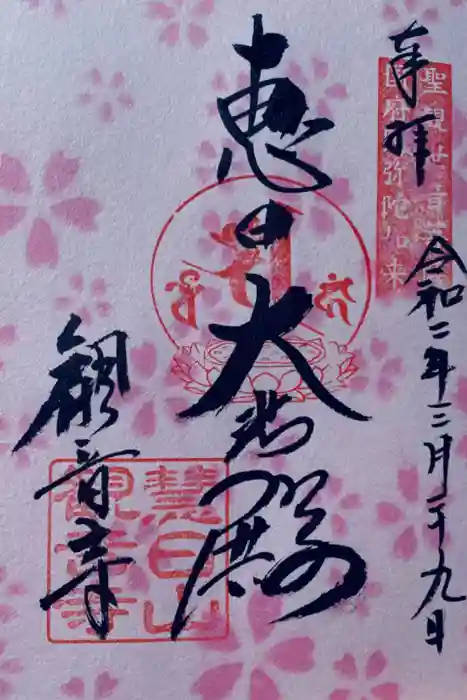 奉拝
聖観世音菩薩
弥陀如来
令和二年三月二十九日
恵日大悲殿
観音寺
慧日山
観音寺